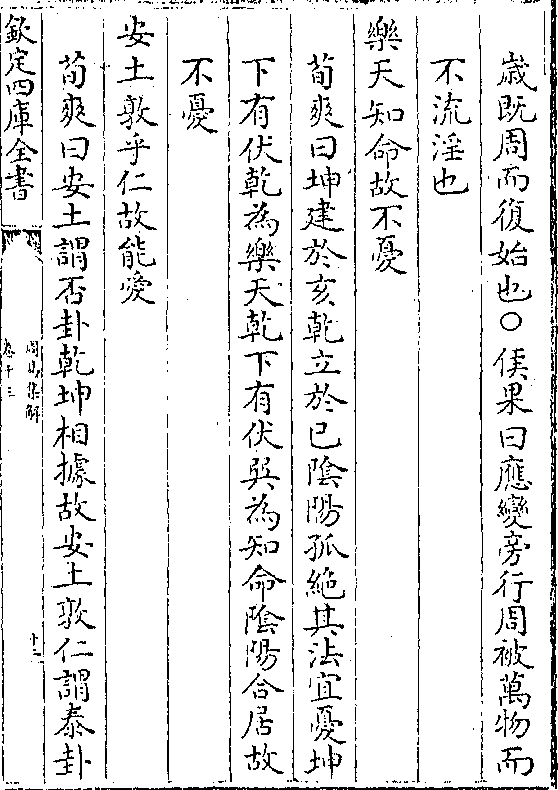 歲既周而復始也○侯果曰應變旁行周被萬物而
不流淫也
樂天知命故不憂
荀爽曰坤建於亥乾立於已陰陽孤絶其法宜憂坤
下有伏乾為樂天乾下有伏巽為知命隂陽合居故
不憂
安土敦乎仁故能愛
荀爽曰安土謂否卦乾坤相據故安土敦仁謂泰卦
欽定四庫全書
周易集解
卷十三